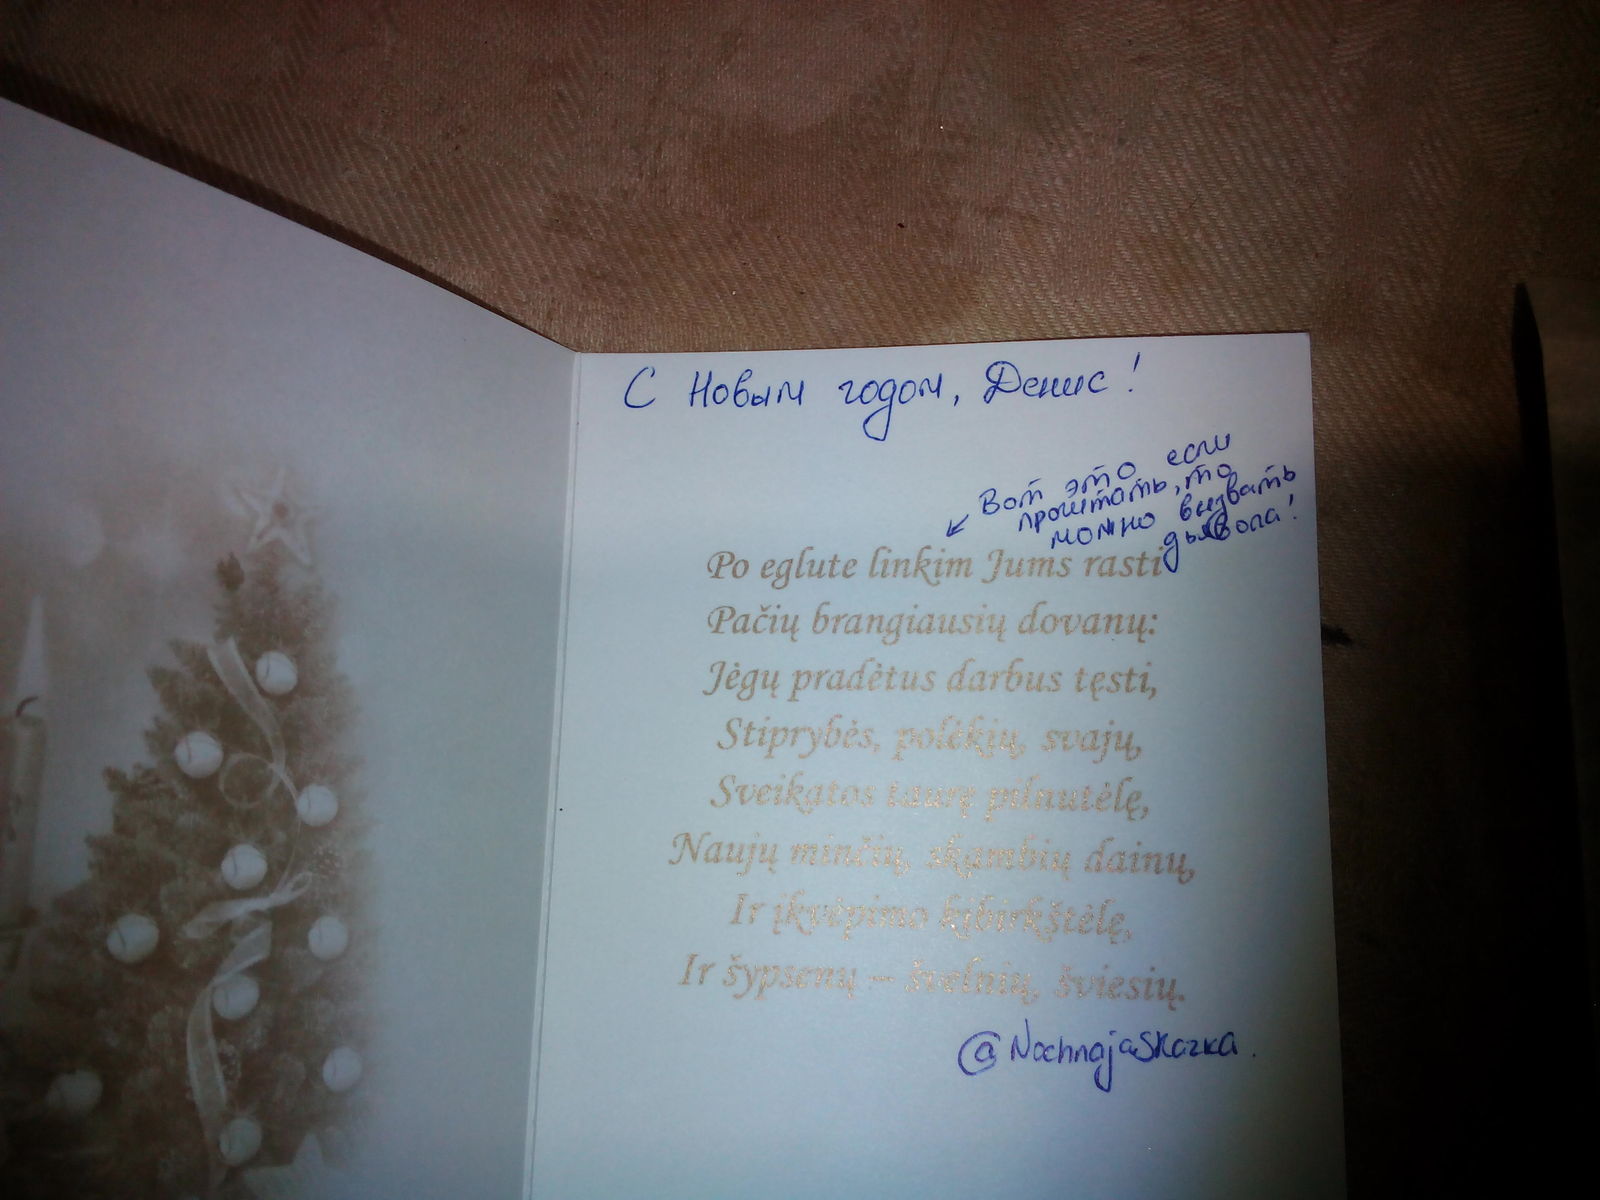 С Новым годом, Денис!
Вот это если
прочитать, то
можно вызвать
дьявола!
Po eglute linkim Jums rasti
Pačių brangiausių dovanų:
Jėgų pradėtus darbus tęsti,
Stiprybės, polėkių, svajų,
Sveikatos taurę pilnutėlę,
Naujų minčių, skambių dainų,
Ir įkvėpimo kibirkštėlę,
Ir šypsenų – švelnių, šviesių.
@NochnajaSkazka.